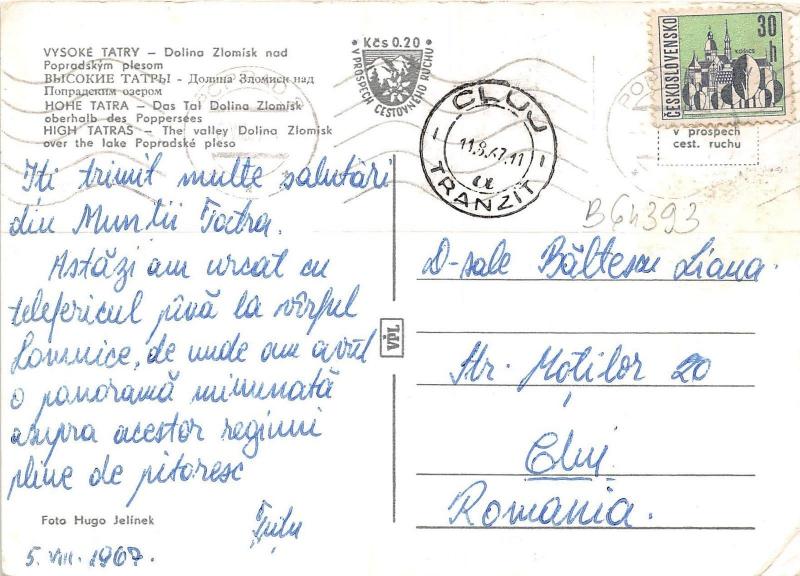 VYSOKÉ TATRY – Dolina Zlomísk nad
Popradským plesom
ВЫСОКИЕ ТАТРЫ - Долина Зломиск над
Попрадским озером
HOHE TATRA – Das Tal Dolina Zlomísk
oberhalb des Poppersées
HIGH TATRAS – The valley Dolina Zlomísk
over the lake Popradské pleso
Kčs 0.20
V PROSPECH CESTOVNÉHO RUCHU
CLUJ
11.8.67.11
TRANZIT
ČESKOSLOVENSKO
30 h
KOŠICE
v prospech
cest. ruchu
B 64393
Iti trimit multe salutări
din Munții Tatra.
Astăzi am urcat cu
telefericul pînă la vîrful
Lomnice, de unde am avut
o panoramă minunată
asupra acestor regiuni
pline de pitoresc
5. VIII. 1967.
D-sale Băltescu Liana.
Str. Moților 20
Cluj
Romania.
VPL
Foto Hugo Jelínek